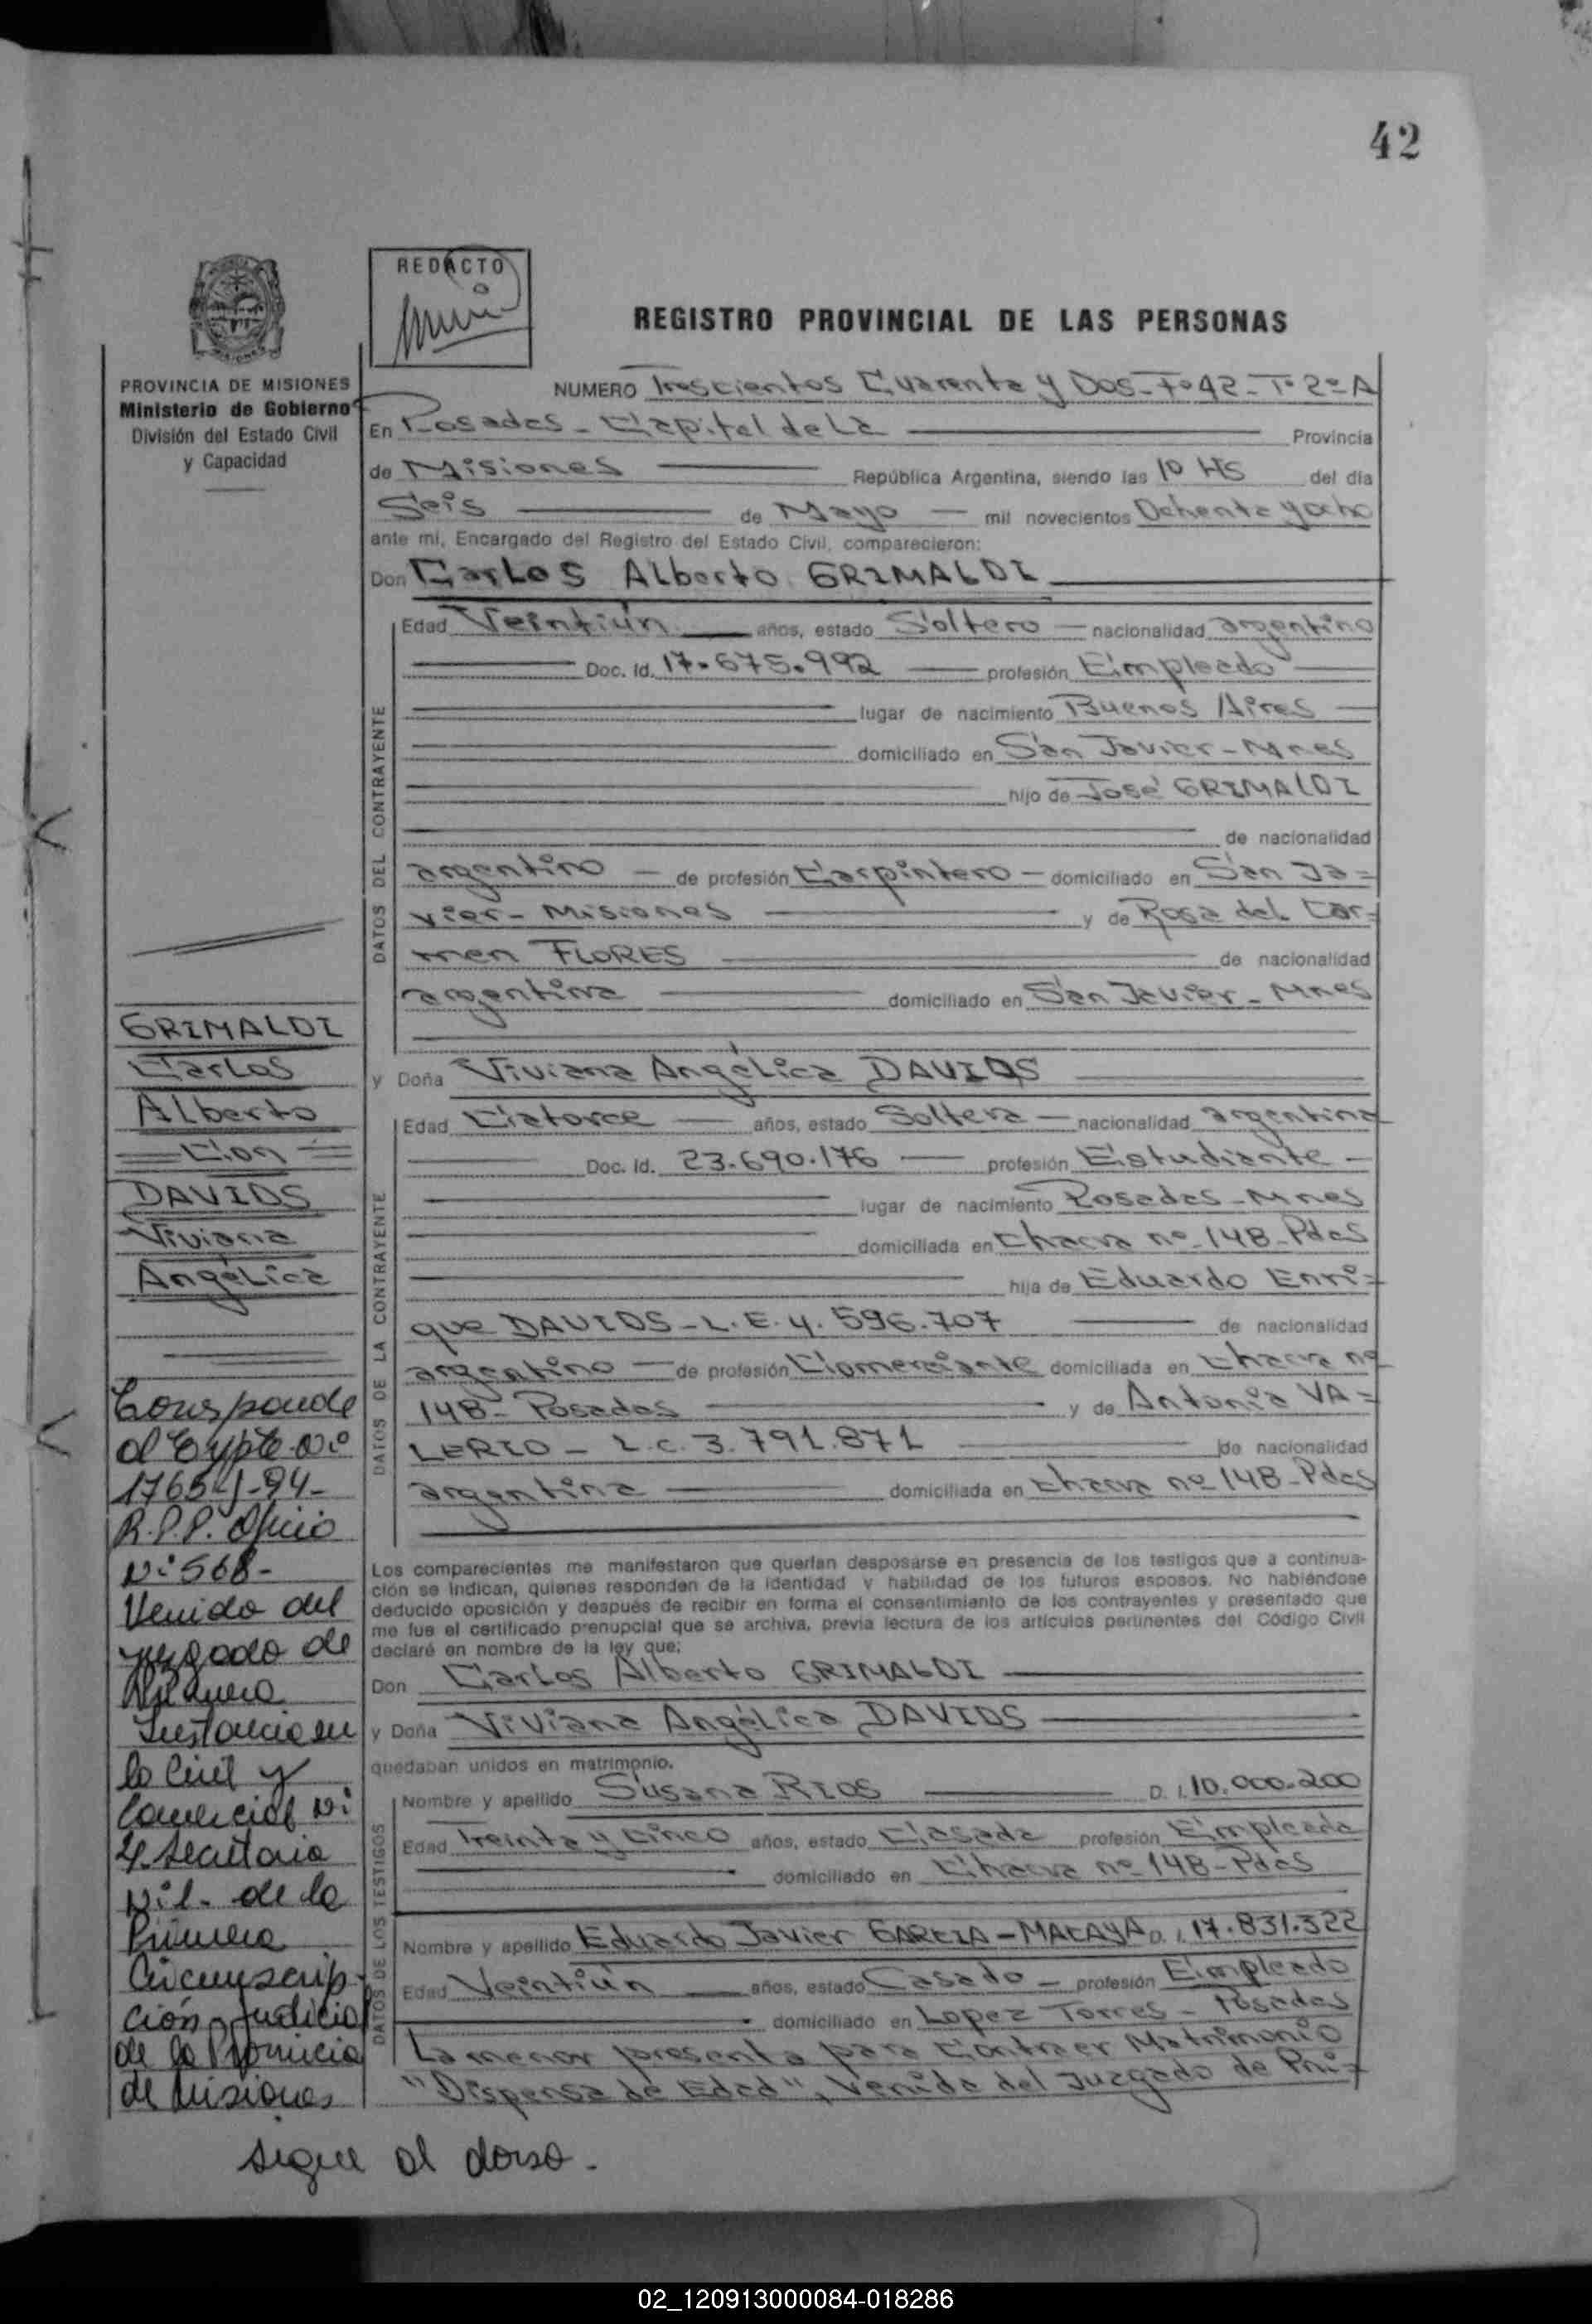 42
REDACTO
REGISTRO PROVINCIAL DE LAS PERSONAS
PROVINCIA DE MISIONES
Ministerio de Gobierno
División del Estado Civil
y Capacidad
NUMERO Trescientos Cuarenta y Dos - Fº 42 - Tº 2º - A
En Posadas - Capital de La Provincia
de Misiones República Argentina, siendo las 10 HS del día
Seis de Mayo mil novecientos Ochenta y ocho
ante mí, Encargado del Registro del Estado Civil, comparecieron:
Don Carlos Alberto GRIMALDI
DATOS DEL CONTRAYENTE
Edad Veintiún años, estado Soltero nacionalidad argentino
Doc. Id. 17.675.992 profesión Empleado
lugar de nacimiento Buenos Aires
domiciliado en San Javier - Mnes
hijo de José GRIMALDI
de nacionalidad
argentino de profesión Carpintero domiciliado en San Ja=
vier - Misiones y de Rosa del Car=
men FLORES de nacionalidad
argentina domiciliado en San Javier - Mnes
y Doña Viviana Angélica DAVIDS
DATOS DE LA CONTRAYENTE
Edad Catorce años, estado Soltera nacionalidad argentina
Doc. Id. 23.690.176 profesión Estudiante
lugar de nacimiento Posadas - Mnes
domiciliada en Chacra nº 148 - Pdas
hija de Eduardo Enri=
que DAVIDS - L.E. 4.596.707 de nacionalidad
argentino de profesión Comerciante domiciliada en Chacra nº
148 - Posadas y de Antonia VA=
LERIO - L.C. 3.791.871 de nacionalidad
argentina domiciliada en Chacra nº 148 - Pdas
Los comparecientes me manifestaron que querían desposarse en presencia de los testigos que a continua-
ción se indican, quienes responden de la identidad y habilidad de los futuros esposos. No habiéndose
deducido oposición y después de recibir en forma el consentimiento de los contrayentes y presentado que
me fue el certificado prenupcial que se archiva, previa lectura de los artículos pertinentes del Código Civil
declaré en nombre de la ley que:
Don Carlos Alberto GRIMALDI
y Doña Viviana Angélica DAVIDS
quedaban unidos en matrimonio.
DATOS DE LOS TESTIGOS
Nombre y apellido Susana RIOS D. I. 10.000.200
Edad Treinta y Cinco años, estado Casada profesión Empleada
domiciliado en Chacra nº 148 - Pdas
Nombre y apellido Eduardo Javier GARCIA - MACAYA D. I. 17.831.322
Edad Veintiún años, estado Casado profesión Empleado
domiciliado en Lopez Torres - Posadas
La menor presenta para Contraer Matrimonio
"Dispensa de Edad", Venida del Juzgado de Pri=
GRIMALDI
Carlos
Alberto
Con
DAVIDS
Viviana
Angélica
Corresponde
al Expte. Nº
R.P.P. Oficio
Nº 568-
Venido del
juzgado de
Primera
Instancia en
lo Civil y
Comercial Nº
4. Secretaria
Nº 1. de la
Primera
Circunscrip-
ción Judicial
de la Provincia
de Misiones
sigue al dorso.
02_120913000084-018286